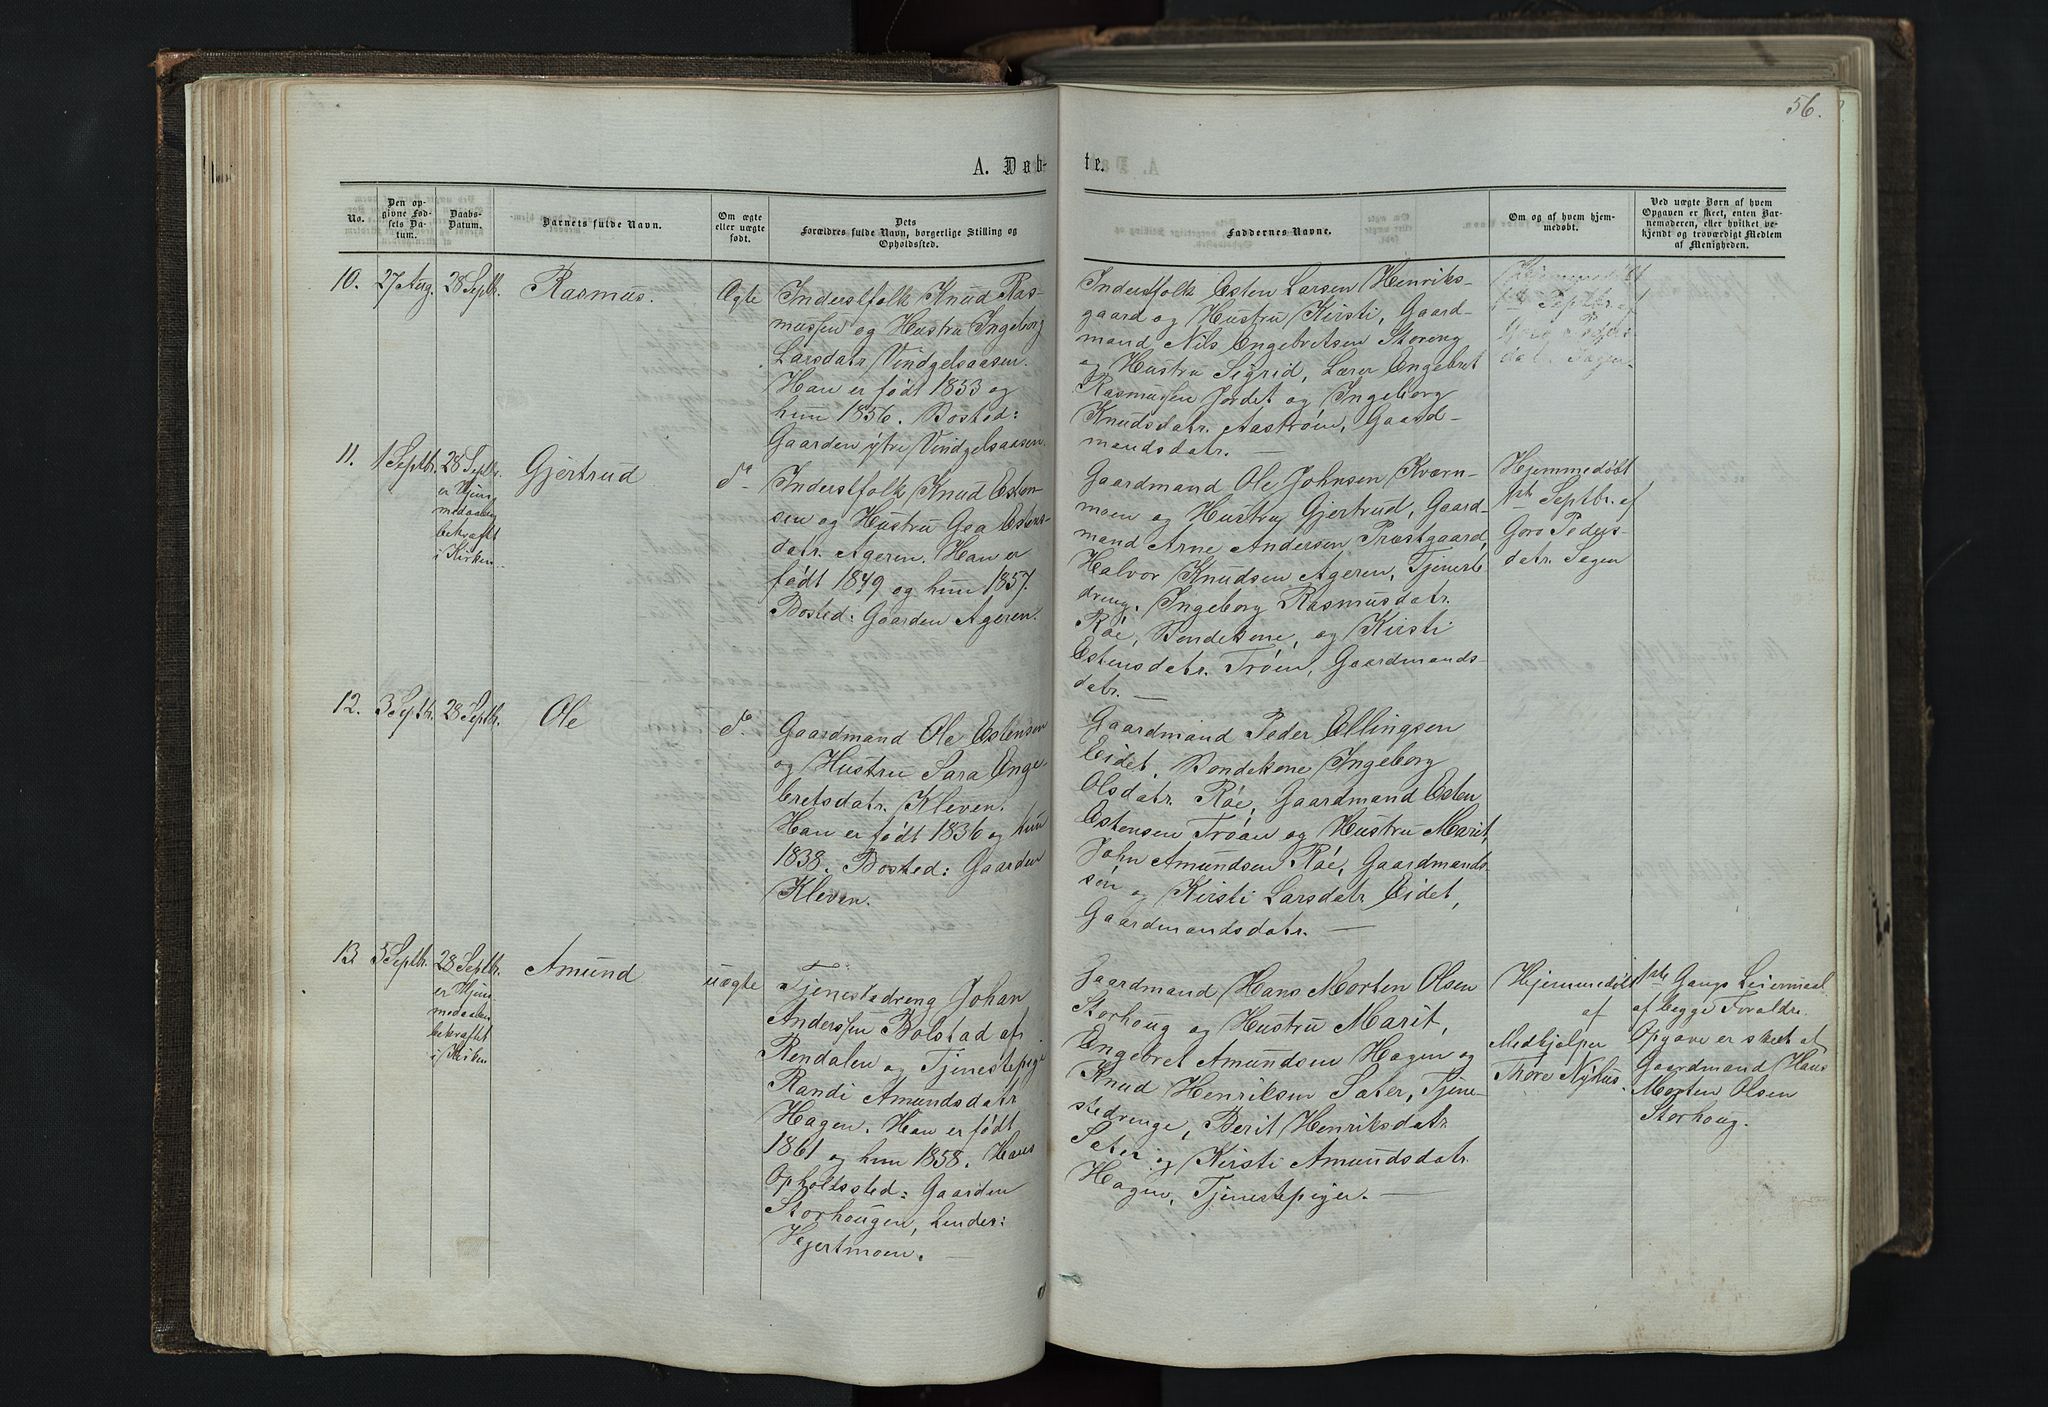 56.
A. Døb-
te.
No.
Den op-
givne Fød-
sels Da-
tum.
Daabs-
Datum.
Barnets fulde Navn.
Om ægte
eller uægte
født.
Dets
Forældres fulde Navn, borgerlige Stilling og
Opholdssted.
Faddernes Navne.
Om og af hvem hjem-
medøbt.
Ved uægte Børn af hvem
Opgaven er skeet, enten Bar-
nemoderen, eller hvilket ve-
kjendt og troværdigt Medlem
af Menigheden.
10.
27 Aug.
28 Septbr.
Rasmus.
Ægte
Inderstfolk Knud Ras-
mussen og Hustru Ingeborg
Larsdatr Vindgelsaasen.
Han er født 1853 og
hun 1856. Bosted:
Gaarden ytre Vindgelsaasen.
Inderstfolk Esten Larsen Henriks-
gaard og Hustru Kirsti, Gaard-
mand Nils Engebretsen Storeng
og Hustru Sigrid, Lærer Engebret
Rasmussen Jordet og Ingeborg
Knudsdatr. Aastrøen, Gaard-
mandsdatr. —
Hjemmedøbt
1ste Septbr. af
Goro Peders-
datr. Sagen.
11.
1 Septbr.
28 Septbr.
er Hjem-
medaaben
bekræft
i Kirken.
Gjertrud
do
Inderstfolk Knud Esten-
sen og Hustru Goa Estens-
datr. Ageren. Han er
født 1849 og hun 1857.
Bosted: Gaarden Ageren.
Gaardmand Ole Johnsen Kværn-
moen og Hustru Gjertrud, Gaard-
mand Arne Andersen Præstgaard,
Halvor Knudsen Ageren, Tjeneste
dreng, Ingeborg Rasmusdatr.
Røe, Bondekone, og Kirsti
Estensdatr. Trøen, Gaardmands-
datr. —
Hjemmedøbt
1ste Septbr. af
Goro Peders-
datr. Sagen
12.
3 Septbr.
28 Septbr.
Ole
do
Gaardmand Ole Estensen
og Hustru Sara Enge
bretsdatr. Kleven.
Han er født 1836 og hun
1838. Bosted: Gaarden
Kleven.
Gaardmand Peder Ellingsen
Eidet, Bondekone Ingeborg
Olsdatr. Røe, Gaardmand Esten
Estensen Trøan og Hustru Marit,
John Amundsen Røe, Gaardmands-
søn og Kirsti Larsdatr Eidet,
Gaardmandsdatr. —
13
5 Septbr.
28 Septbr.
er Hjem
medaaben
bekræftet
i Kirken
Amund
uægte
Tjenestedreng Johan
Anderssen Bolstad af
Rendalen og Tjenestepige
Randi Amundsdatr
Hagen. Han er født
1861 og hun 1858. Hans
Opholdssted: Gaarden
Storhougen, hendes:
Hjertmoen. —
Gaardmand Hans Morten Olsen
Storhoug og Hustru Marit,
Engebret Amundsen Hagen og
Knud Henriksen Sæter, Tjene-
stedrenge, Berit Henriksdatr
Sæter og Kirsti Amundsdatr.
Hagen, Tjenestepiger. —
Hjemmedøbt
af
Medhjælper
Thore Nyhus.
1ste Gangs Leiermaal
af begge Forældre.
Opgave er skeet af
Gaardmand Hans
Morten Olsen
Storhoug.